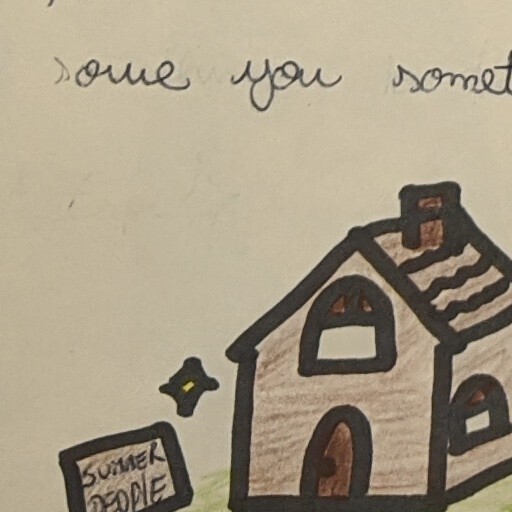 owe you somet
SUMMER
PEOPLE